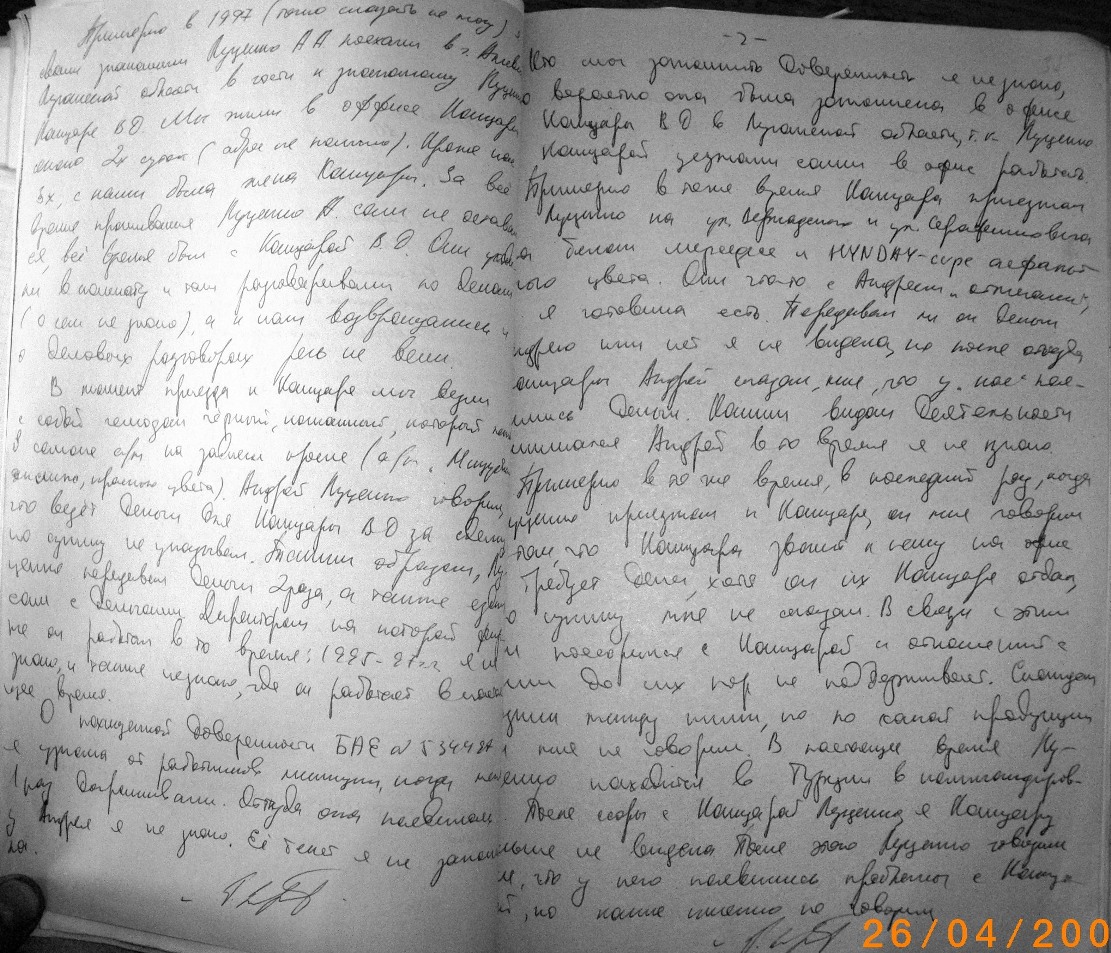 Примерно в 1997 (точно сказать не могу) я
своим знакомым Луценко А А поехали в г. Алчев
Луганской области в гости к знакомому Луценко
Канцаре В Д. Мы жили в оффисе Канцары
около 2х суток (адрес не помню). Кроме нас
3х, с нами была жена Канцары. За всё
время проживания Луценко А. сам не оставал
ся, всё время был с Канцарой В. Д. Они уходи
ли в комнату и там разговаривали по делам
(о чем не знаю), а к нам возвращались и
о деловых разговорах речь не вели.
В момент приезда к Канцаре мы везли
с собой чемодан чёрный, который
в салоне а/м на заднем кресле (а/м
цвета). Андрей Луценко говорил,
что везёт деньги для Канцары В Д за
но сумму не указывал. Таким образом, Лу
ценко передавал деньги 2 раза, а также ездил
сам с Директором на которой
же он работал в то время: 1995-97 г.г. я не
знаю, и также не знаю, где он работает в насто
ящее время.
О похищенной доверенности БАЕ №534427
я узнала от работников милиции, когда меня
1 раз допрашивали. Откуда она появилась
у Андрея я не знаю. Её текст я не запол
няла.
-2-
Кто мог заполнить доверенность я не знаю,
вероятно она была заполнена в офисе
Канцары В Д в Луганской области, т. к. Луценко
Канцарой уезжали сами в офис работать.
Примерно в тоже время Канцара приезжал
Луценко на ул. Вернадского и ул. Серафимовича
на белом мерседесе и HYNDAY-супе асфальт
ного цвета. Они что-то с Андреем „отмечали",
я готовила есть. Передавал ли он деньги
Андрею или нет я не видела, но после отъезда
Канцары Андрей сказал мне, что у „нас" поя-
вились деньги. Каким видом деятельности
занимался Андрей в то время я не знаю.
Примерно в то же время, в последний раз, когда
Луценко приезжал к Канцаре, он мне говорил
о том, что Канцара звонит к нему на офис
требует денег, хотя он их Канцаре отдал,
но сумму мне не сказал. В связи с этим
он поссорился с Канцарой и отношений с
ним до сих пор не поддерживает. Скандал
между ними, но по какой продукции
мне не говорил. В настоящее время Лу-
ценко находится в Турции в командиров-
После ссоры с Канцарой Луценко, я Канцару
больше не видела. После этого Луценко говорил
мне, что у него появились проблемы с Канца-
рой, но какие именно не говорил
26/04/200